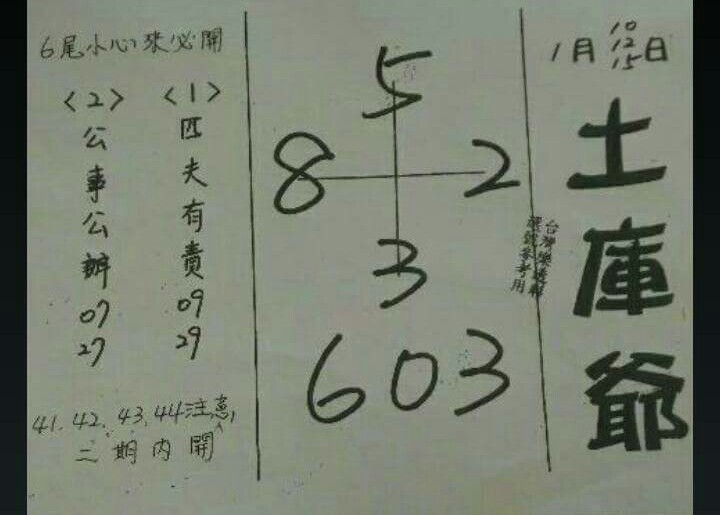 1月10 12 15日
土庫爺
台灣樂透
選號參考用
5
8 2
3
603
6尾小心來必開
<1>
匹夫有責
09
29
<2>
公事公辦
07
27
41.42.43.44注意,
二期內開